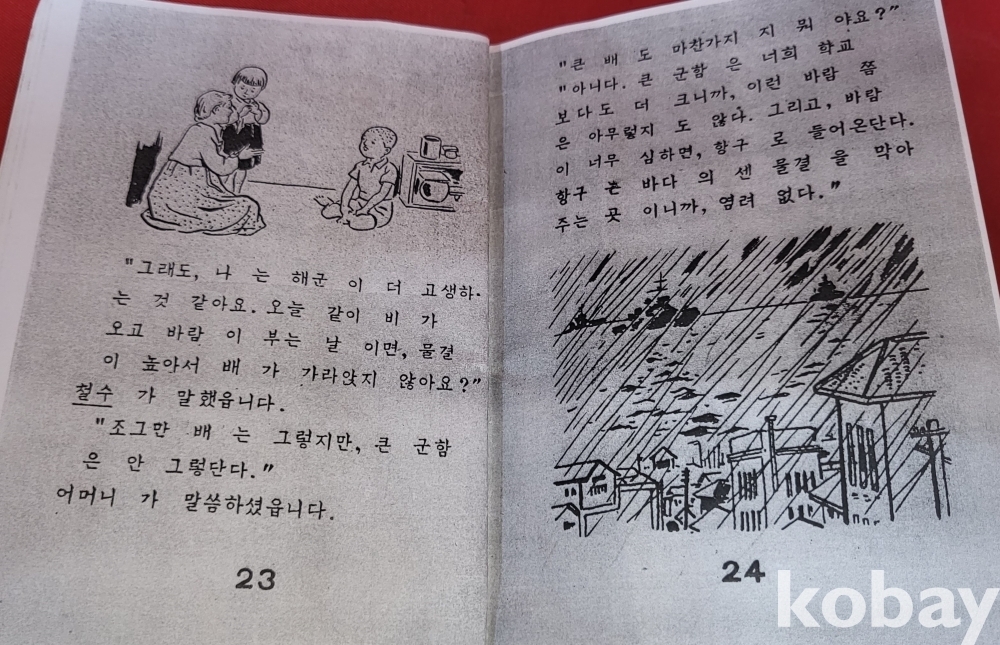 "그래도, 나 는 해군 이 더 고생하-
는 것 같아요. 오늘 같이 비 가
오고 바람 이 부는 날 이면, 물결
이 높아서 배 가 가라앉지 않아요?"
철수 가 말했읍니다.
"조그만 배 는 그렇지만, 큰 군함
은 안 그렇단다."
어머니 가 말씀하셨읍니다.
23
"큰 배 도 마찬가지 지 뭐 야요?"
"아니다. 큰 군함 은 너희 학교
보다도 더 크니까, 이런 바람 쯤
은 아무렇지 도 않다. 그리고, 바람
이 너무 심하면, 항구 로 들어온단다.
항구 는 바다 의 센 물결 을 막아
주는 곳 이니까, 염려 없다."
24
kobay